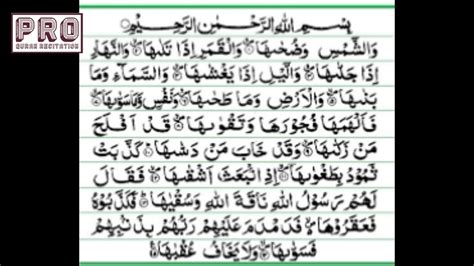 PRO
QURAN RECITATION
بِسْمِ اللهِ الرَّحْمٰنِ الرَّحِيْمِ
وَالشَّمْسِ وَضُحٰىهَا ۙ وَالْقَمَرِ اِذَا تَلٰىهَا ۙ وَالنَّهَارِ
اِذَا جَلّٰىهَا ۙ وَالَّيْلِ اِذَا يَغْشٰىهَا ۙ وَالسَّمَآءِ وَمَا
بَنٰىهَا ۙ وَالْاَرْضِ وَمَا طَحٰىهَا ۙ وَنَفْسٍ وَّمَا سَوّٰىهَا ۙ
فَاَلْهَمَهَا فُجُوْرَهَا وَتَقْوٰىهَا ۙ قَدْ اَفْلَحَ
مَنْ زَكّٰىهَا ۙ وَقَدْ خَابَ مَنْ دَسّٰىهَا ۙ كَذَّبَتْ
ثَمُوْدُ بِطَغْوٰىهَا ۙ اِذِ انْۢبَعَثَ اَشْقٰىهَا ۙ فَقَالَ
لَهُمْ رَسُوْلُ اللهِ نَاقَةَ اللهِ وَسُقْيٰهَا ۙ فَكَذَّبُوْهُ
فَعَقَرُوْهَا ۙ فَدَمْدَمَ عَلَيْهِمْ رَبُّهُمْ بِذَنْۢبِهِمْ
فَسَوّٰىهَا ۙ وَلَا يَخَافُ عُقْبٰهَا